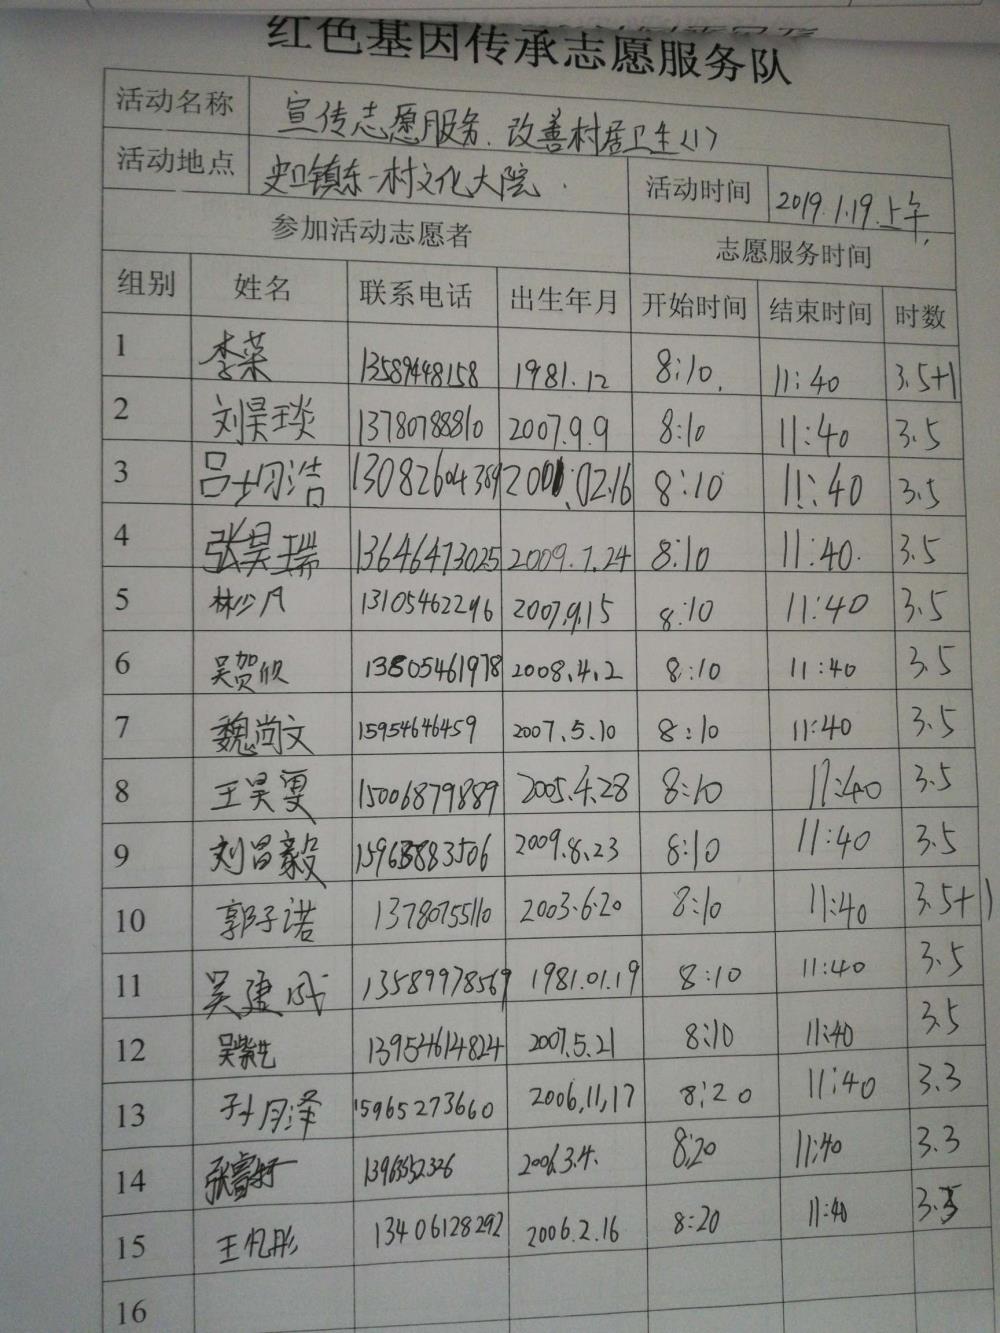 红色基因传承志愿服务队
活动名称 宣传志愿服务、改善村居卫生<1>
活动地点 史口镇东一村文化大院. 活动时间 2019.1.19.上午.
参加活动志愿者 志愿服务时间
组别 姓名 联系电话 出生年月 开始时间 结束时间 时数
1 李荣 13589448158 1981.12 8:10. 11:40 3.5+1
2 刘昊琰 13780788810 2007.9.9 8:10 11:40 3.5
3 13082604389 8:10 11:40 3.5
4 张昊瑞 13646473025 2009.7.24 8:10 11:40. 3.5
5 林少凡 13105462296 2007.9.15 8:10 11:40 3.5
6 吴贺欣 13805461978 2008.4.2 8:10 11:40 3.5
7 魏尚文 15954646459 2007.5.10 8:10 11:40 3.5
8 王昊雯 15006879889 2005.4.28 8:10 11:40 3.5
9 刘昌毅 2009.8.23 8:10 11:40 3.5
10 郭子诺 13780755110 2003.6.20 8:10 11:40 3.5+1
11 吴建成 13589978569 1981.01.19 8:10 11:40 3.5
12 13954614824 2007.5.21 8:10 11:40 3.5
13 孙月泽 15965273660 2006,11,17 8:20 11:40 3.3
14 2006.3.4. 8:20 11:40 3.3
15 王凡彤 13406128292 2006.2.16 8:20 11:40
16